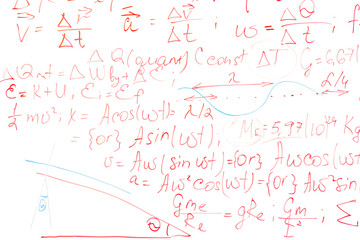 V⃗ = Δr⃗/Δt ; a⃗ = ΔV⃗/Δt ; ω = ΔΘ/Δt ;
ΔQ (quant) (const ΔT) G = 6,671
ΔQ int = ΔW by + R C ;
λ
λ/4
Ɛ = K + U; Ɛi = Ɛf
½ mv²; x = Acos(ωt) = λ/2
= {or} Asin(ωt), Ms = 5,97·10²⁴ Kg
v = Aω(sin ωt) = {or} Aωcos(ωt
a = Aω² cos(ωt) = {or} Aω² sin
Θ
Θ
Gme/Re = gRe ; Gm/r² ; Σ